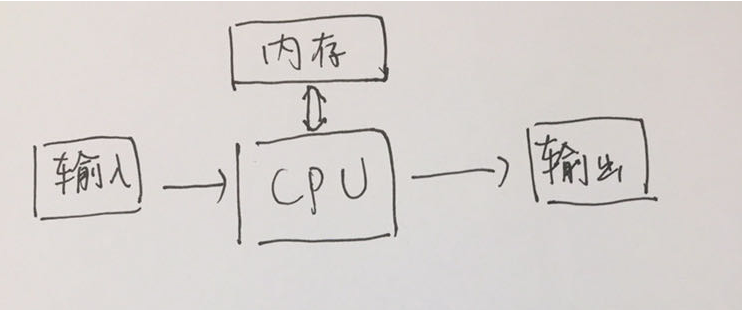 内存
输入
CPU
输出